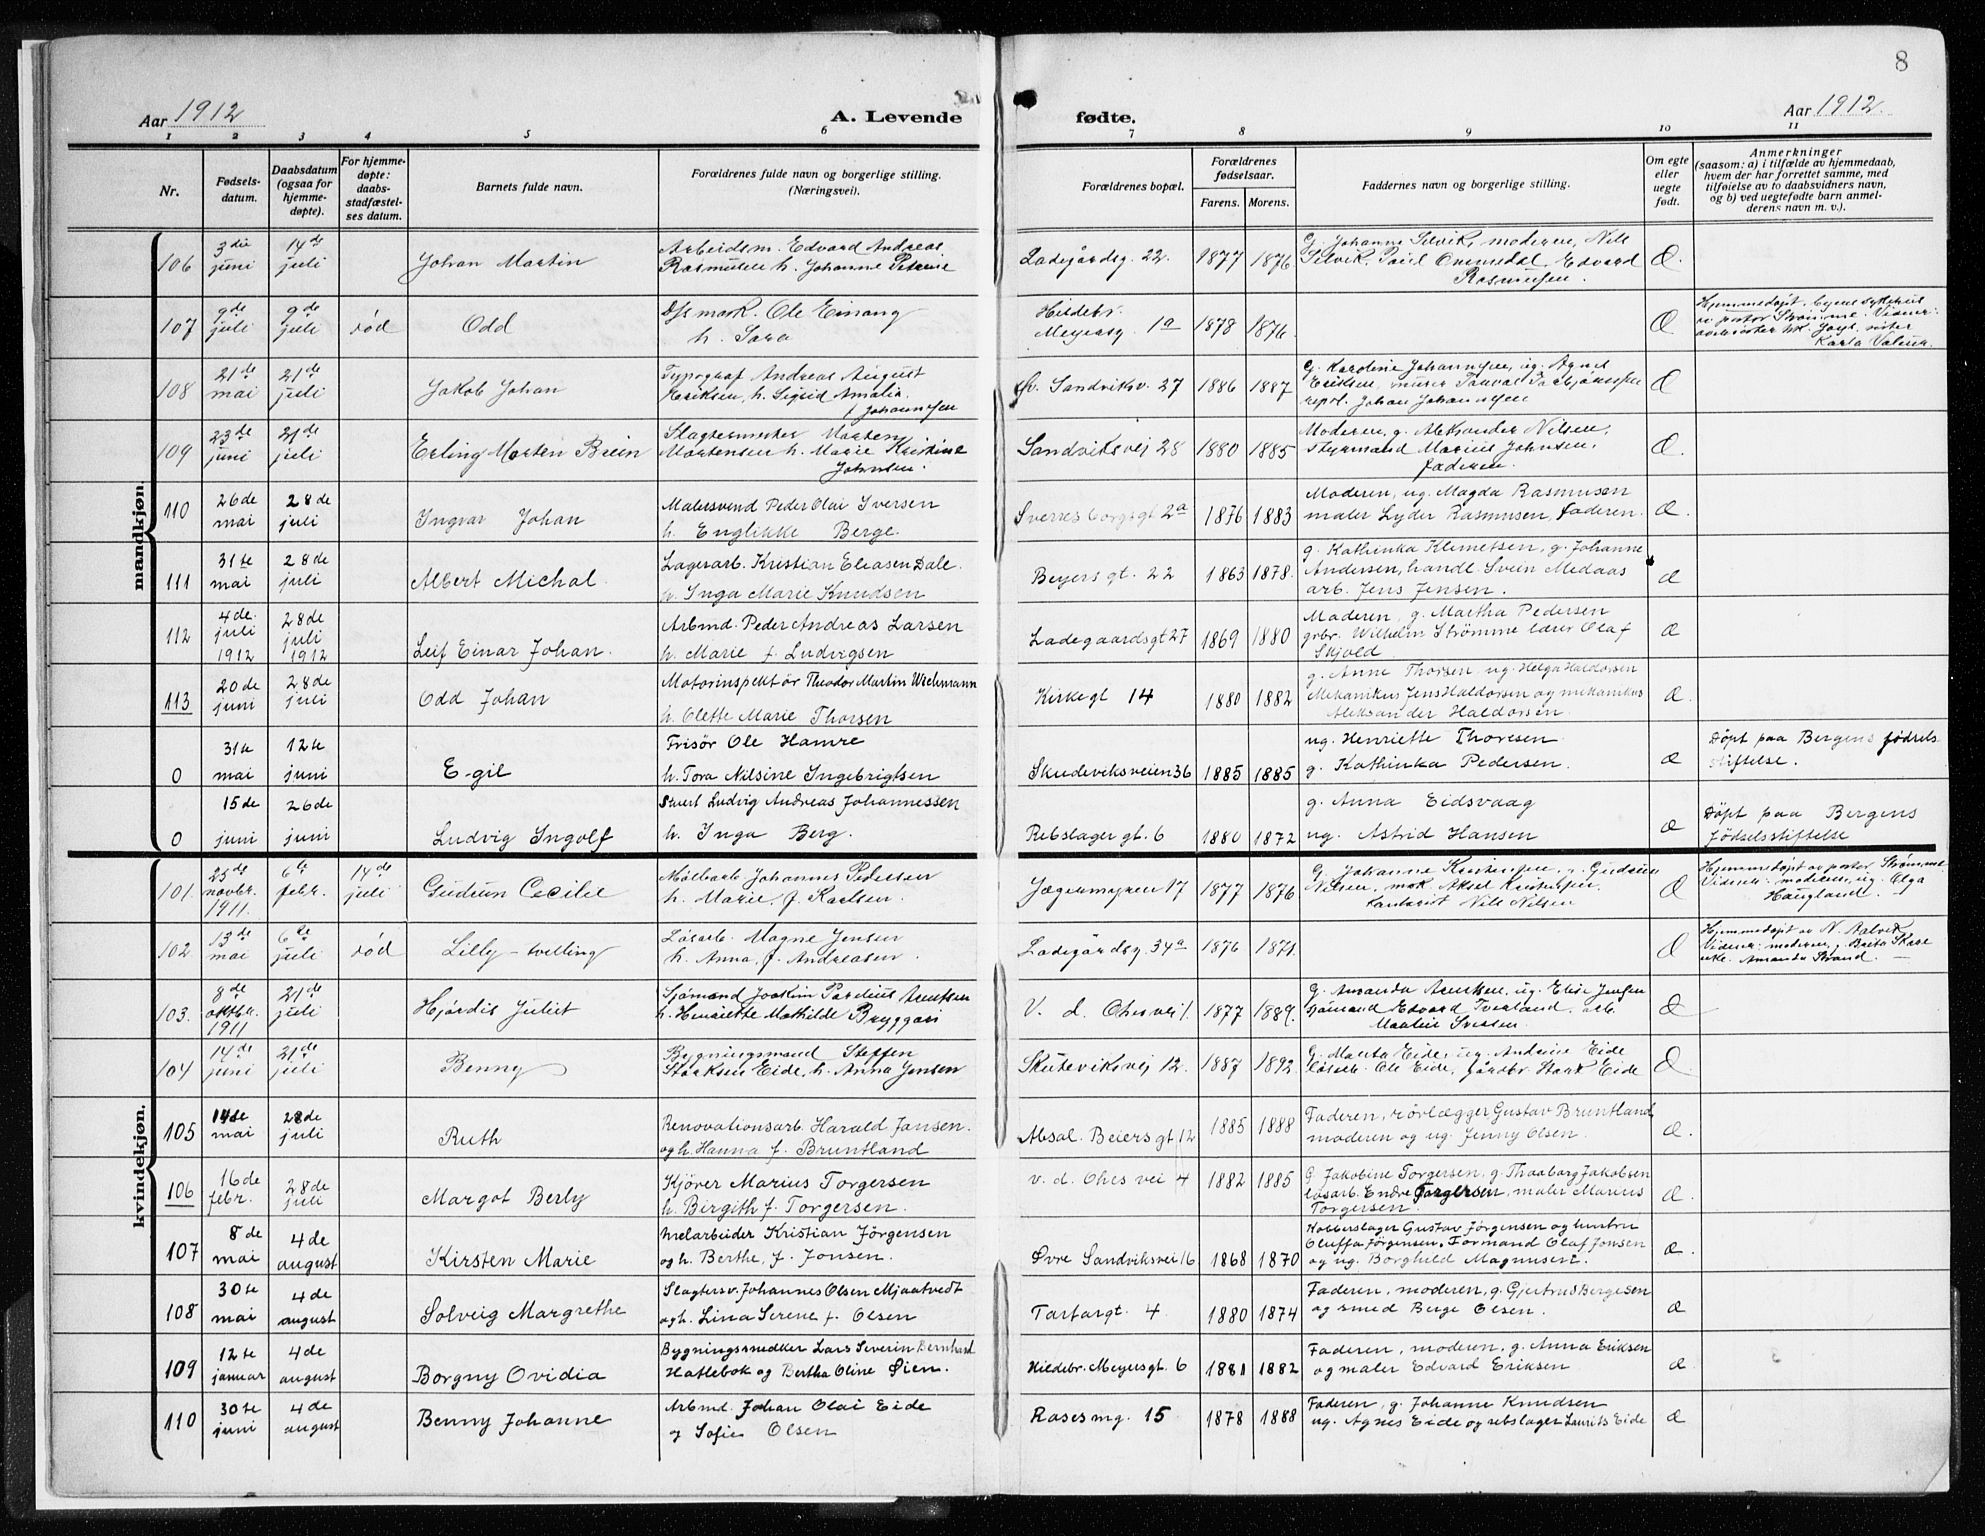 8
Aar 1912 A. Levende fødte. Aar 1912.
1 2 3 4 5 6 7 8 9 10 11
Nr. Fødsels-datum. Daabsdatum (ogsaa for hjemme-døpte). For hjemme-døpte: daabs-stadfæstel-ses datum. Barnets fulde navn. Forældrenes fulde navn og borgerlige stilling. (Næringsvei). Forældrenes bopæl. Forældrenes fødselsaar. Farens. Morens. Faddernes navn og borgerlige stilling. Om egte eller uegte født. Anmerkninger (saasom: a) i tilfælde av hjemmedaab, hvem der har forrettet samme, med tilføielse av to daabsvidners navn, og b) ved uegtefødte barn anmel-derens navn m. v.).
mandkjøn.
106 3die juni 14de juli Johan Martin Arbeidsm. Edvard Andreas Rasmussen h. Johanne Petrine Ladegårdsg. 22. 1877 1876 G. Johanne Selvik, moderen, Nils Selvik, Paul Edvard Rasmussen. Æ.
107 9de juli 9de juli død Odd Ole Einang h. Sara Hildebr. Meyersg 1a 1878 1876. Æ Hjemmedøpt. av pastor Strømme. Vidner: søster Karla
108 21de mai 21de juli Jakob Johan Typograf Andreas August Eriksen, h. Sigrid Amalia f Johannessen Øv. Sandviksv. 27 1886 1887 G. Karoline Johannessen, ug. Agnes Eriksen, murer repsl. Johan Johannessen Æ
109 23de juni 21de juli Erling Morten Brein Slagtermester Morten Mortensen h. Marie Kristine Johnsen. Sandviksvej 28 1880 1885 Moderen, g. Aleksander Nilsen, Styrmand Marius Johnsen, faderen. Æ.
110 26de mai 28de juli Ingvar Johan Malersvend Peder Olai Iversen h. Englikke Berge. Sverresborgsgt 2a 1876 1883 Moderen, ug. Magda Rasmusen maler Lyder Rasmusen, faderen. Æ.
111 31te mai 28de juli Albert Michal. Lagerarb. Kristian Eliasen Dale. h. Inga Marie Knudsen Beyers gt. 22 1863 1878. g. Kathinka Klemetsen, g. Johanne Andersen, handl. Svein Medaas arb. Jens Jensen. Æ
112 4de. juli 1912 28de juli 1912 Leif Einar Johan. Arbmd. Peder Andreas Larsen h. Marie f. Ludvigsen Ladegaardsgt 27 1869 1880 Moderen, g. Martha Pedersen grbr. Wilhelm Strømme lærer Olaf Skjold Æ
113 20de juni 28de juli Odd Johan Motorinspektør Theodor Martin Wichmann h. Olette Marie Thorsen Kirkegt 14 1880 1882 g. Anne Thorsen ug. Helga Haldorsen Mekanikus Jens Haldorsen og mekanikus Aleksander Haldorsen. Æ.
0 31te mai 12te juni Egil Frisør Ole Hamre h. Tora Nilsine Ingebrigtsen Skudeviksveien 36 1885 1885 ug. Henriette Thoresen. g. Kathinka Pedersen. Æ Døpt paa Bergens fødsels stiftelse.
0 15de juni 26de juni Ludvig Ingolf Stuert Ludvig Andreas Johannessen h. Inga Berg. Rebslager gt. 6 1880 1872 g. Anna Eidsvaag ug. Astrid Hansen Æ Døpt paa Bergens Fødselsstiftelse
kvindekjøn.
101. 25de novbr. 1911. 6te febr. 14de juli Gudrun Cecilie Målbarb. Johannes Pedersen h. Marie, f. Karlsen. Jægermyren 17 1877 1876 G. Johanne Kristensen, g. Gudrun Nilsen, mek Aksel Kristensen. Nils Nilsen Æ Hjemmedøpt av pastor Strømme. Vidner: moderen, ug. Olga Haugland.
102 13de mai 6te juli død Lilly - tvilling Løsarb. Magne Jensen h. Anna, f. Andreasen. Ladegårdsg. 34a 1876 1871. Æ Hjemmedøpt av N. Aalvik Vidner: moderen, Berta Amanda Strand.
103. 8de oktbr. 1911 21de juli Hjørdis Juliet Sjømand Joakim Pardius Arentsen h. Henriette Mathilde Bryggari V. d. Ohesvei 1. 1877 1889. g. Amanda Arentsen, ug. Elise Jensen sjømand Edvard Tverland, arb. Martin Iversen. Æ
104 14de juni 21de juli Benny Bygningsmand Steffen Starksen Eide, h. Anna Jensen Skuteviksvej 12. 1887 1892. G. Marta Eide, ug. Andrine Eide løsarb. Ole Eide, gårdbr. Stark Eide Æ.
105 14de mai 28de juli Ruth Renovationsarb. Harald Jansen. og h. Hanna f. Bruntland Absal. Beiersgt 12 1885 1888 Faderen, rørlægger Gustav Bruntland moderen og ug. Jenny Olsen. Æ.
106 16de febr. 28de juli Margot Berly Kjører Marius Torgersen h. Birgith f. Torgersen. v. d. Ohes vei 4 1882 1885 G. Jakobine Torgersen, g. Thaaborg Jakobsen løsarb. Endre Torgersen, maler Marius Torgersen. Æ.
107 8de mai 4de august Kirsten Marie Melarbeider Kristian Jörgensen og h. Berthe, f. Jonsen. Øvre Sandviksvei 16 1868 1870 Kobberslager Gustav Jörgensen og hustru Oluffa Jørgensen, Formand Olaf Jonsen og ug. Borghild Magnusen. Æ.
108 30te mai 4de august Solveig Margrethe Slagtersv. Johannes Olsen Mjaatvedt og h. Lina Serene f. Olsen Tartargt. 4 1880 1874 Faderen, moderen, g. Gjertrud Bergesen og smed Berge Olsen. Æ
109 12te januar 4de august Borgny Ovidia Bygningssnedker Lars Severin Bernhard Hatlebok og Bertha Oline Øien. Hildebr. Meyersgt. 6 1881 1882 Faderen, moderen, g. Anna Eriksen og maler Edvard Eriksen Æ.
110 30te juni 4de august Benny Johanne Arbmd. Johan Olai Eide og Sofie Olsen Rosesmg. 15 1878 1888 Faderen, g. Johanne Knudsen ug. Agnes Eide og rebslager Laurits Eide Æ